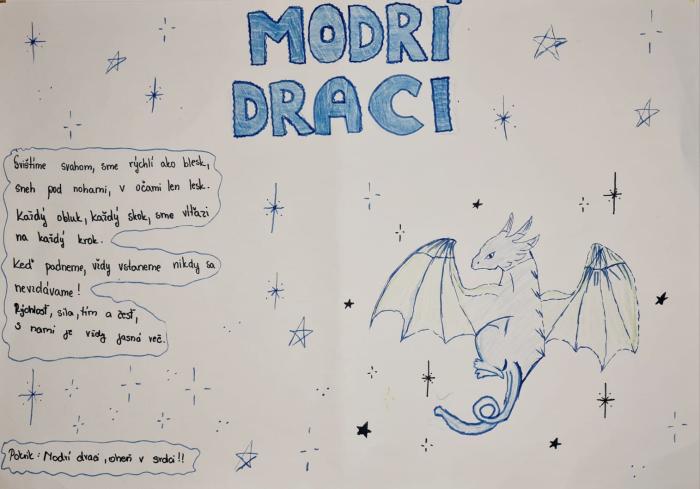 MODRÍ
DRACI
Svištíme svahom, sme rýchlí ako blesk,
sneh pod nohami, v očami len lesk.
Každý obluk, každý skok, sme víťazi
na každý krok.
Keď padneme, vždy vstaneme nikdy sa
nevzdávame!
Rýchlosť, sila, tím a česť,
s nami je vždy jasná več.
Pokrik: Modrí draci, oheň v srdci!!